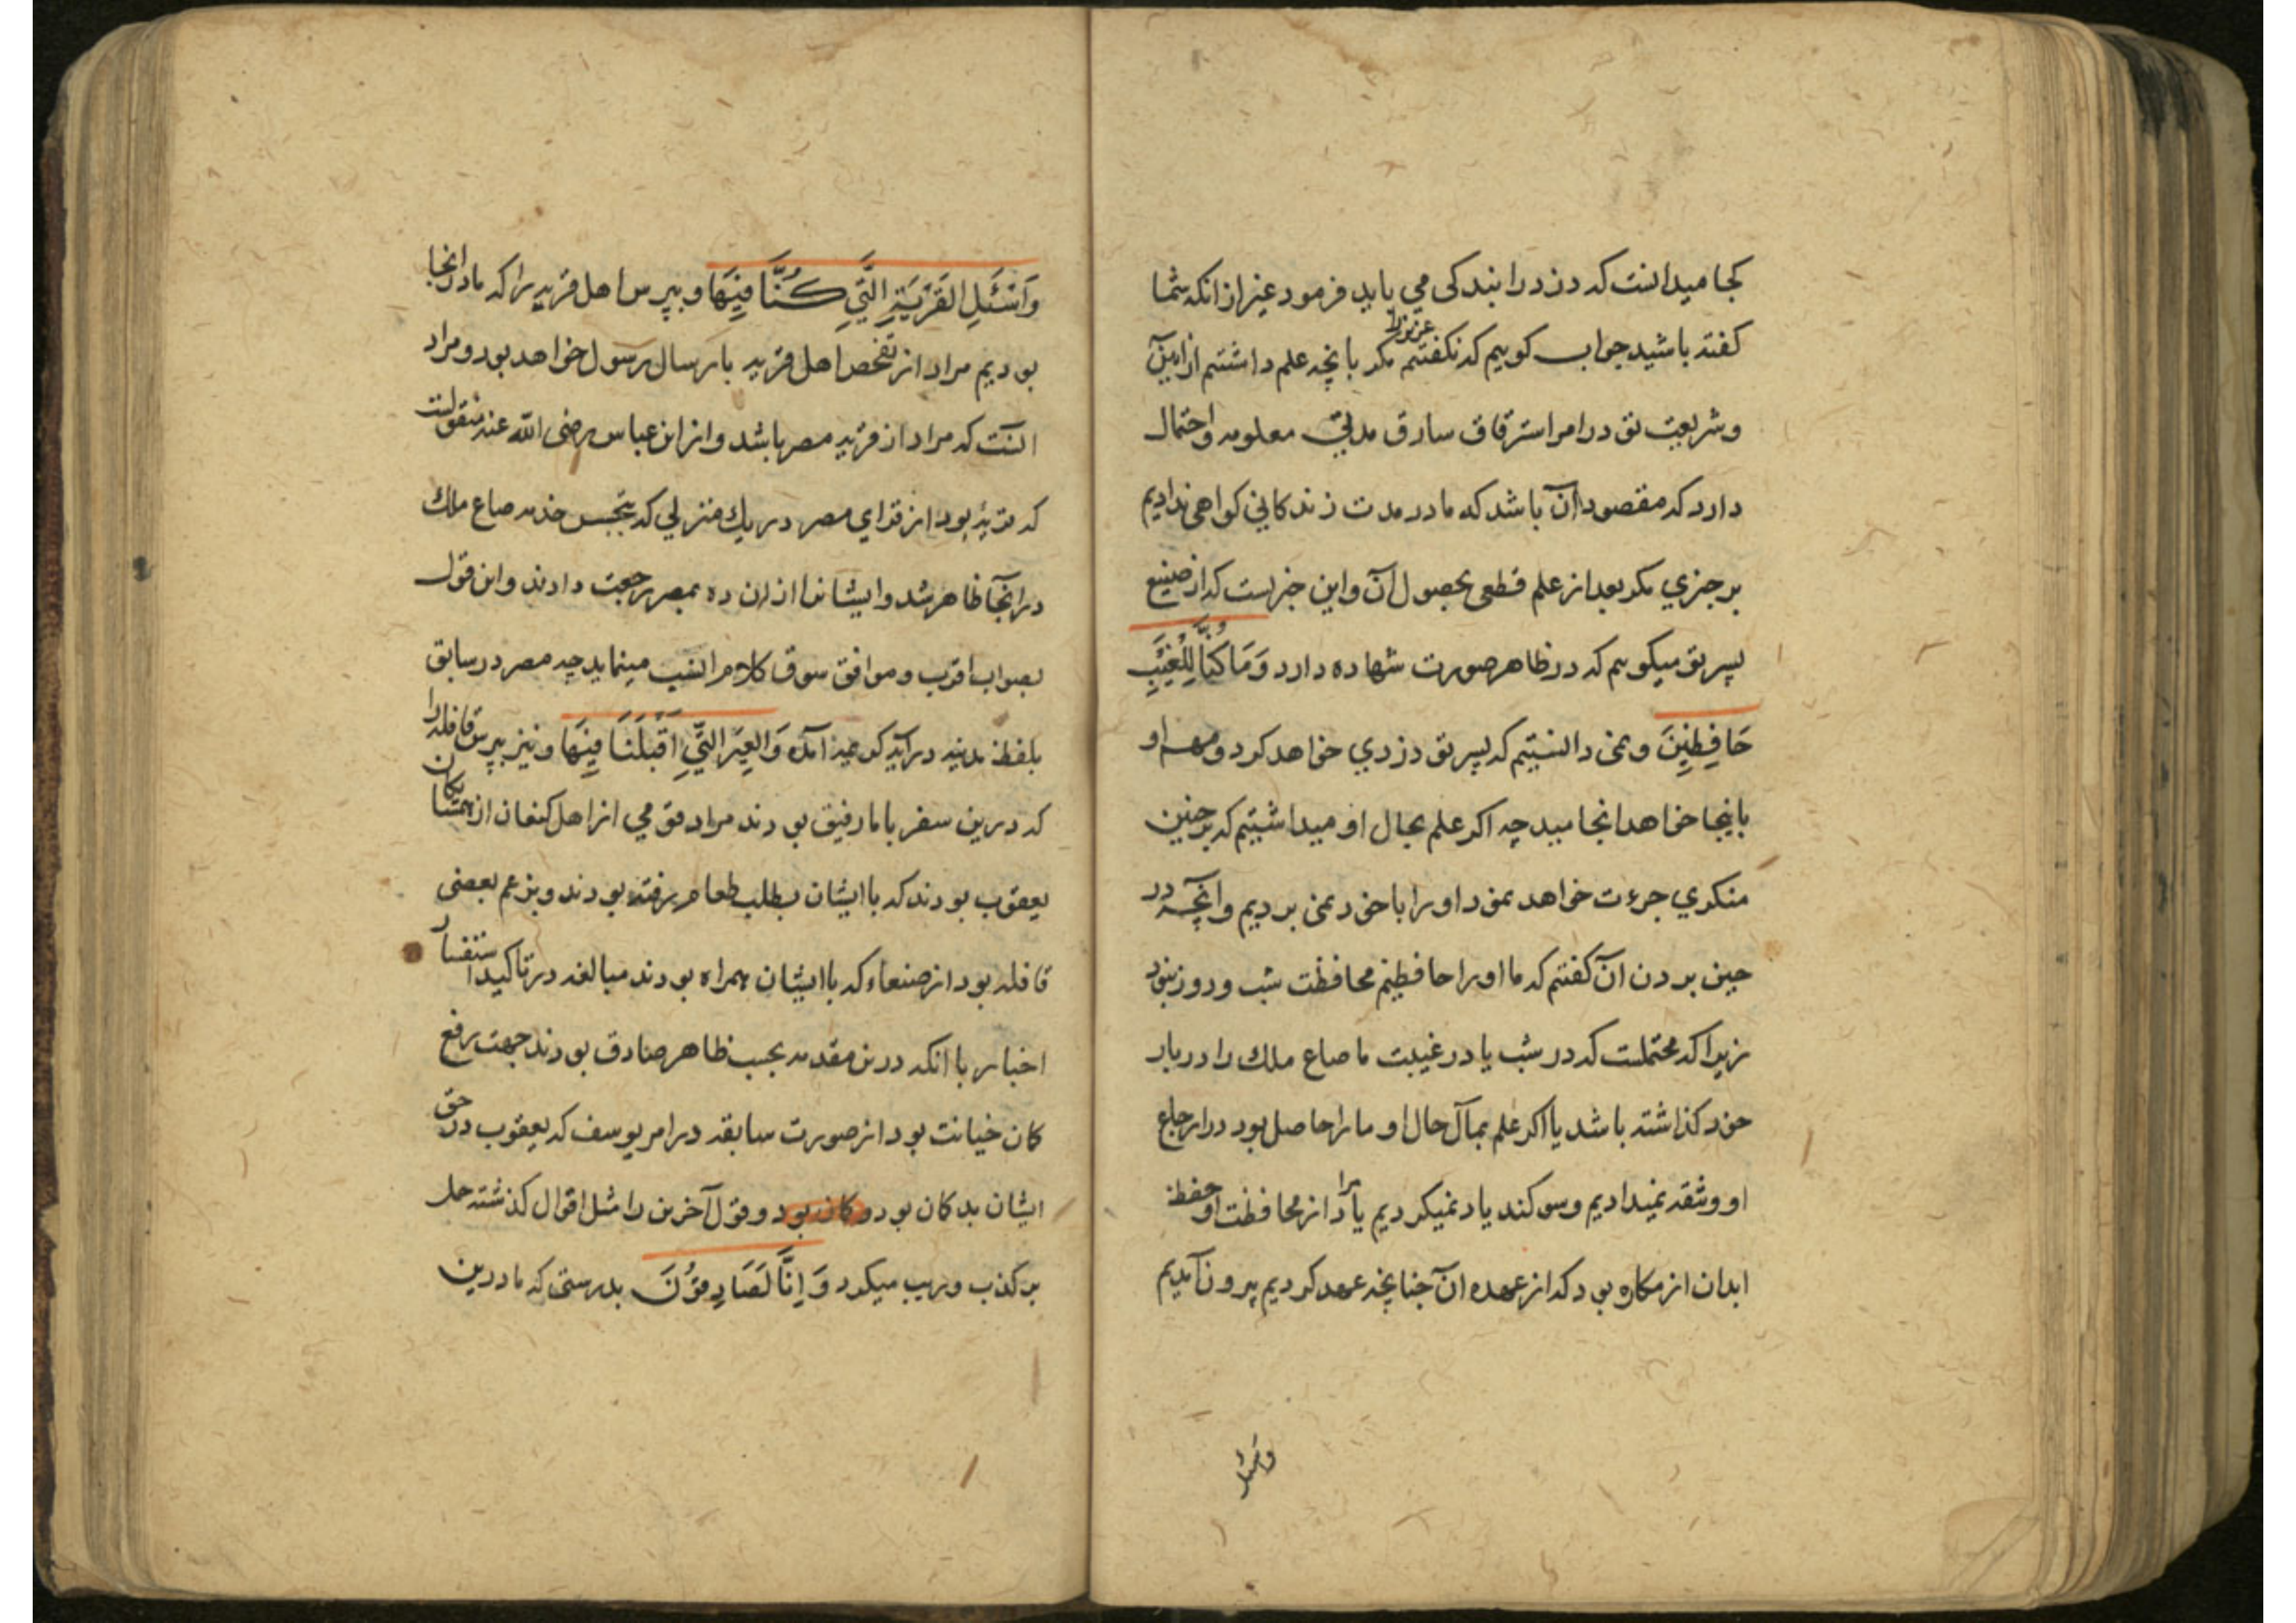 کجا میدانست که دزد را بندکی می باید فرمود غیر از انکه شما
کفته باشید جواب کوییم که نکفتیم عزیز را مکر بانچه علم داشتیم از آیین
و شریعت تو در امر استرقاق سارق مدتی معلومه و احتمال
دارد که مقصود ان باشد که ما در مدت زندکانی کواهی ندادیم
بر چیزی مکر بعد از علم قطعی بحصول آن و این خبریست که از صنیع
پسر تو میکوییم که در ظاهر صورت شهاده دارد وَمَا كُنَّا لِلْغَيْبِ
حَافِظِينَ و نمی دانستیم که پسر تو دزدی خواهد کرد و مهم او
باینجا خواهد انجامید چه اکر علم بحال او میداشتیم که بر چنین
منکری جرءت خواهد نمود او را با خود نمی بردیم و انچه در
حین بردن ان کفتیم که ما او را حافظیم محافظت شب و روز نبود
زیرا که محتملست که در شب یا در غیبت ما صاع ملك را در بار
خود کذاشته باشد یا اکر علم بمآل حال او ما را حاصل بود در ارجاع
او وثقه نمیدادیم و سوکند یاد نمیکردیم یا مراد از محافظت او حفظ
ابدان از مکاره بود که از عهده ان چنانچه عهد کردیم بیرون آمدیم
وسئل
وَاسْئَلِ الْقَرْيَةِ الَّتِي كُنَّا فِيهَا و بپرس اهل قریه را که ما در انجا
بودیم مراد از تفحص اهل قریه بارسال رسول خواهد بود و مراد
انست که مراد از قریه مصر باشد و از ابن عباس رضی الله عنه منقولست
که قریهٔ بود از قرای مصر در یك منزلی که تجسس خدمه صاع ملك
در انجا ظاهر شد و ایشانرا از ان ده بمصر رجعت دادند و این قول
بصواب اقرب و موافق سوق کلام انسب مینماید چه مصر در سابق
بلفظ مدینه در آیهٔ کریمه آمده وَالْعِيرَ الَّتِي أَقْبَلْنَا فِيهَا و نیز بپرس قافله را
که درین سفر با ما رفیق بودند مراد قومی از اهل کنعان از همسایکان
یعقوب بودند که با ایشان بطلب طعام رفته بودند و بزعم بعضی
قافله بود از صنعاء که با ایشان همراه بودند مبالغه در تاکید استفسار
اخبار با انکه درین مقدمه بحسب ظاهر صادق بودند جهت رفع
کان خیانت بود از صورت سابقه در امر یوسف که یعقوب در حق
ایشان بد کان بود و کان بود و قول آخرین را مثل اقوال کذشته حمل
بر کذب و ریب میکرد وَ اِنَّا لَصَادِقُونَ بدرستی که ما درین